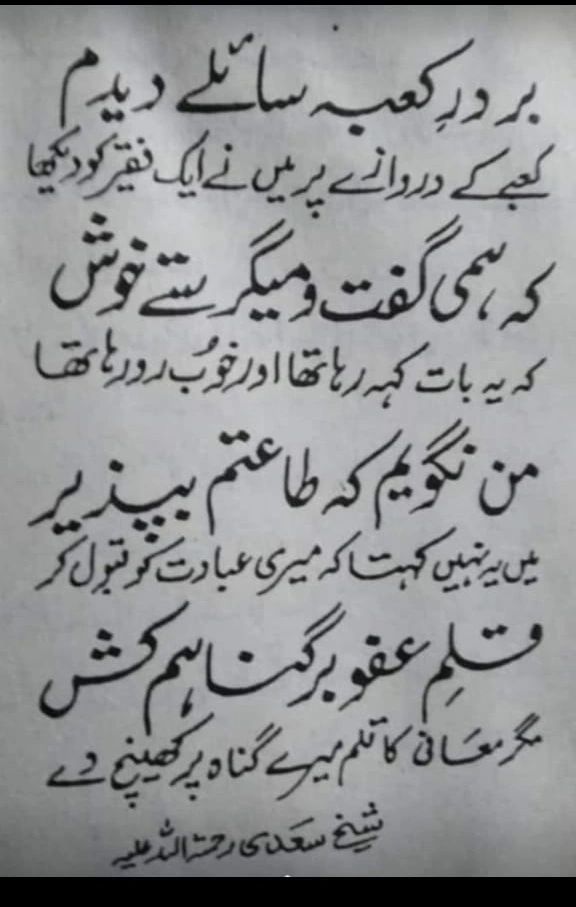 بر درِ کعبہ سائلے دیدم
کعبے کے دروازے پر میں نے ایک فقیر کو دیکھا
کہ ہمی گفت و میگرستے خوش
کہ یہ بات کہہ رہا تھا اور خوُب رو رہا تھا
من نگویم کہ طاعتم بپذیر
میں یہ نہیں کہتا کہ میری عبادت کو قبول کر
قلمِ عفو بر گناہم کش
مگر معَافی کا قلم میرے گناہ پر کھینچ دے
شیخ سعَدی رحمۃ اللہ علیہ